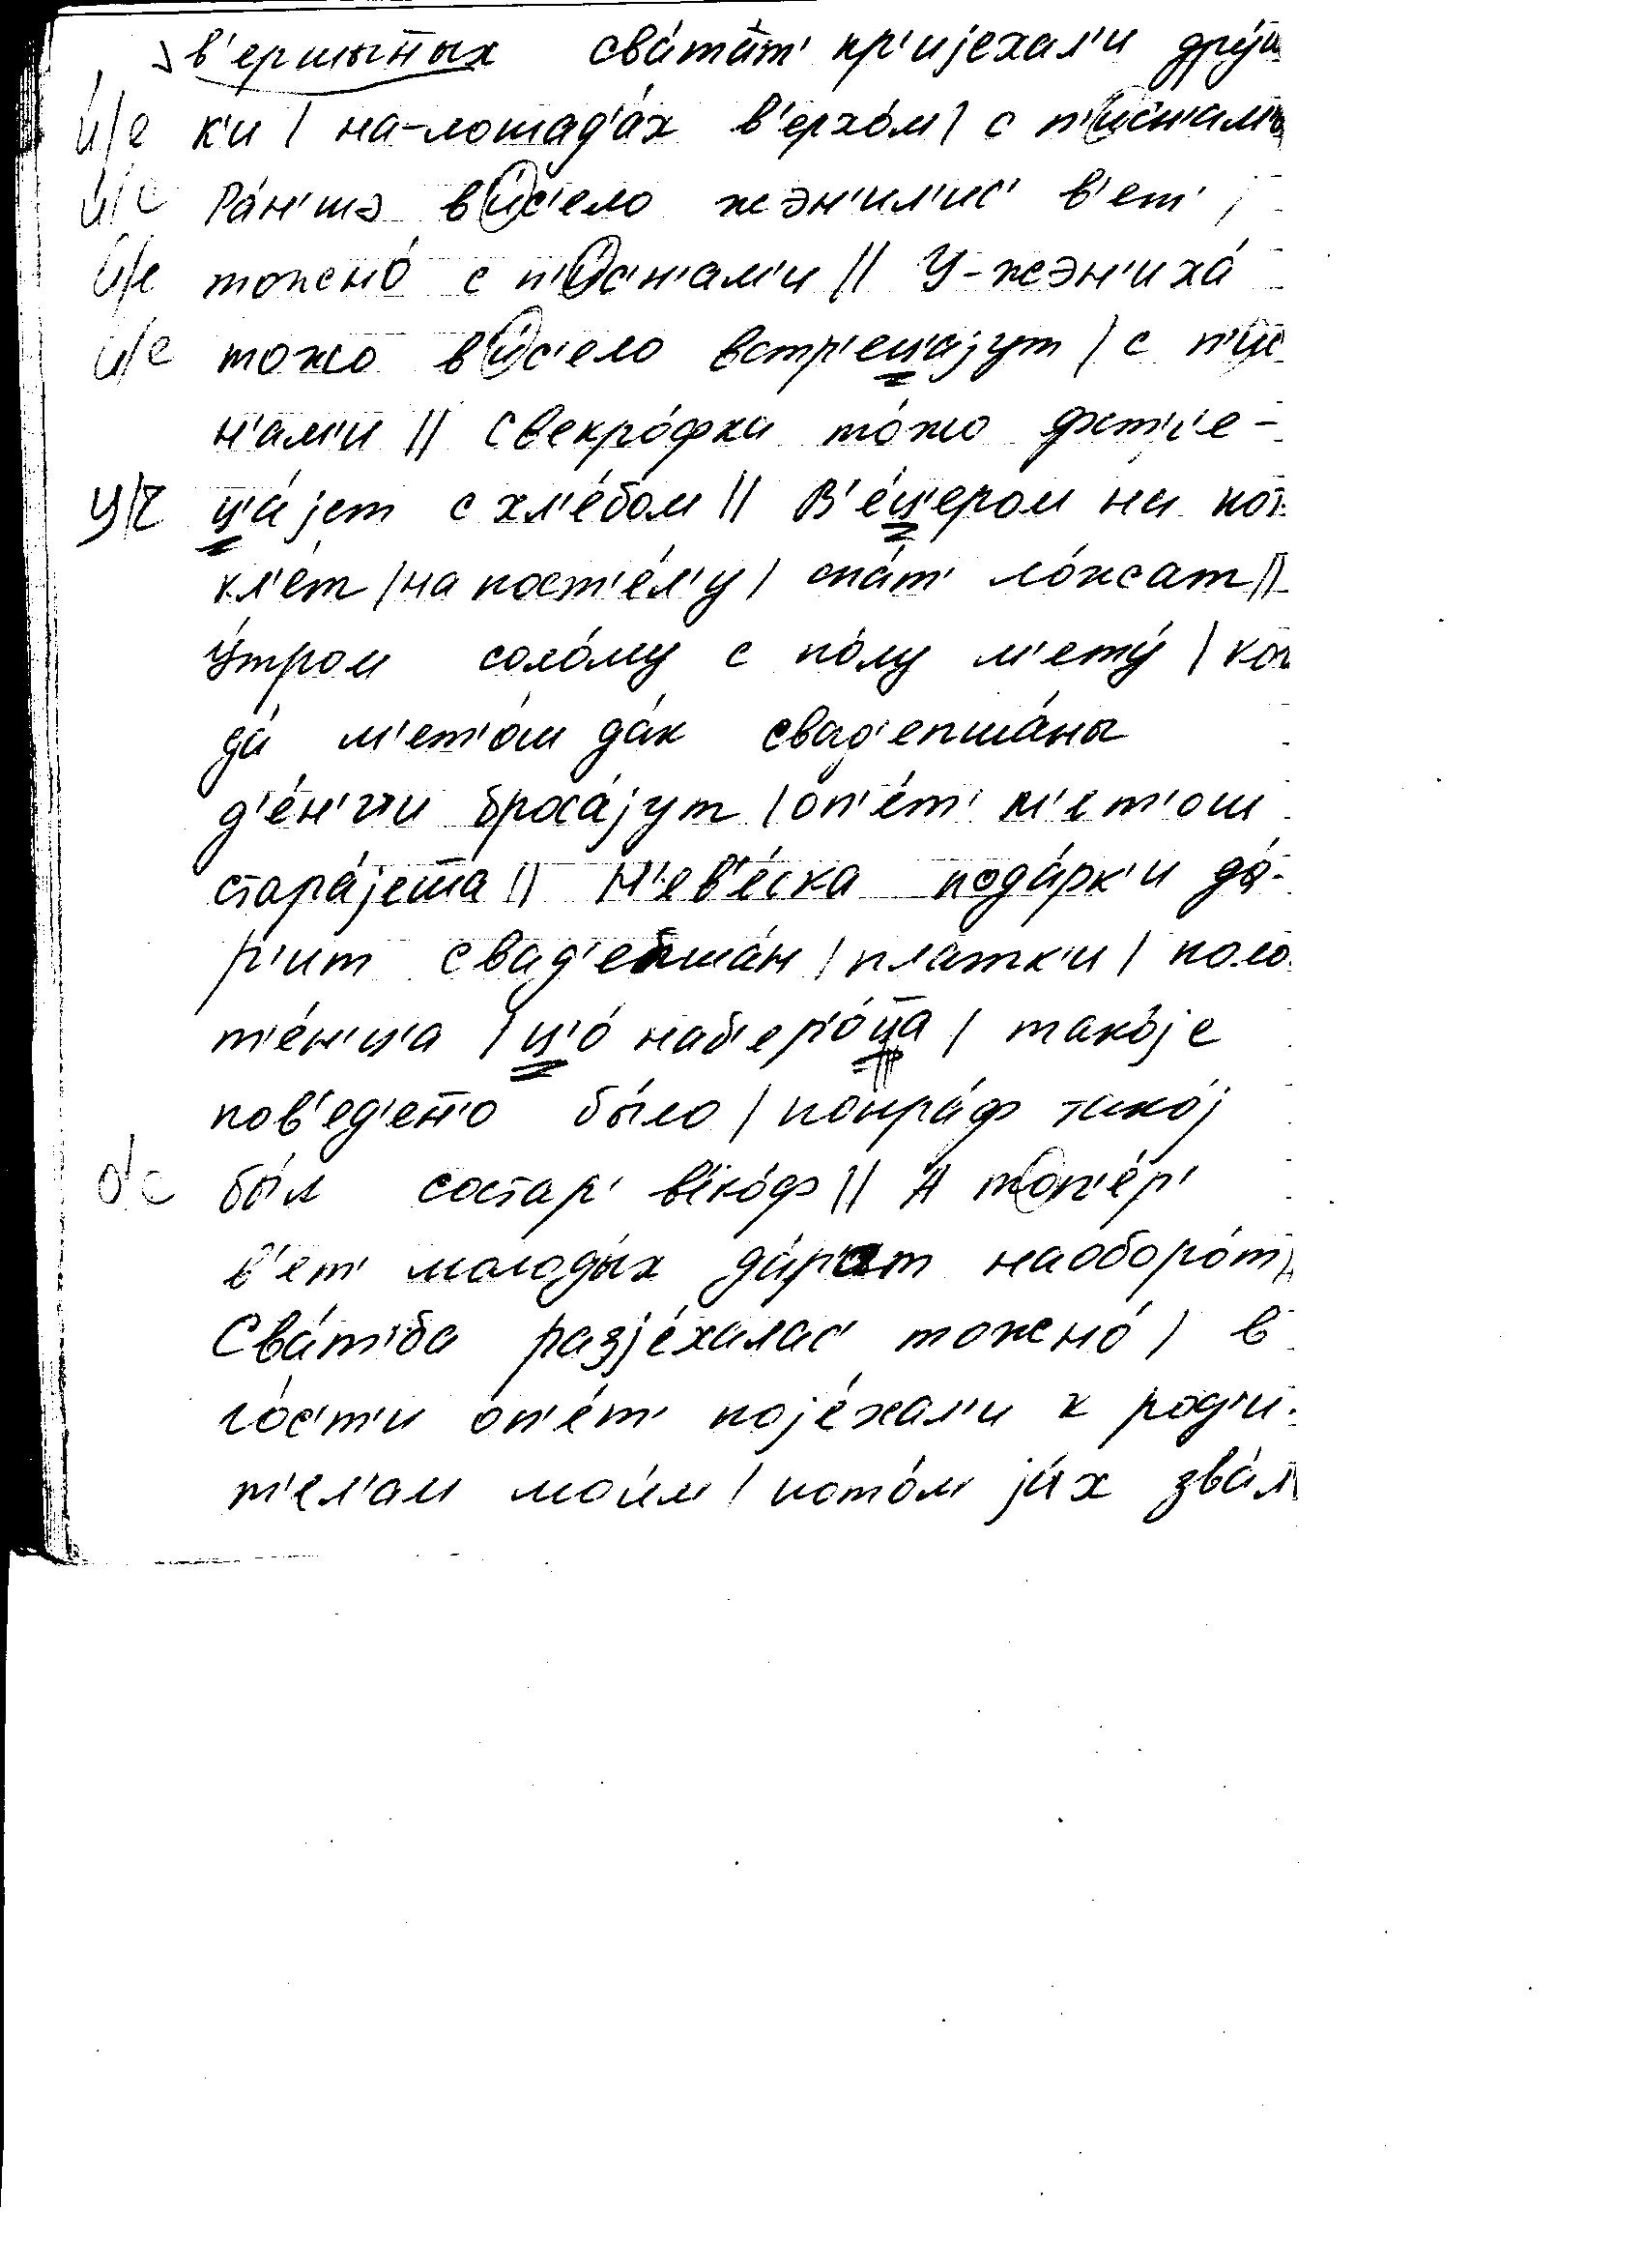 в'ершыных сва́тат' пр'ијехал'и дру́ш
и́/е к'и | на-лошад'а́х в'ерхо́м | с п'и́с'н'ам'и
и́/е Ра́н'шэ в'и́с'ело жэн'ил'ис' в'ет' |
и́/е тожно́ с п'и́с'н'ам'и || У-жэн'иха́
и́/е тожо в'и́с'ело встр'ец'а́јут | с п'и́с
н'ам'и || Свекро́фка то́жо фстр'е-
ц/ч ц'а́јет с хл'е́бом || В'е́ц'ером на под
кл'е́т | на пост'е́л'у | спа́т' ло́жат ||
У́тром соло́му с по́лу м'ету́ | ког
да́ м'ет'о́ш да́к свад'епша́ны
д'е́н'г'и броса́јут | оп'е́т' м'ет'ош
стара́јеша || Н'ев'е́ска пода́рк'и да́-
р'ит свад'епша́н | платк'и | поло
т'е́н'ц'а | ц'о́ наб'ер'о́ца | тако́је
пов'ед'ено бы́ло | понра́ф тако́ј
о/е бы́л состар' в'еко́ф || А топ'е́р'
в'ет' молоды́х да́р'ат наоборо́т ||
Сва́т'ба разје́халас' тожно́ | в
го́с'т'и оп'е́т' поје́хал'и к род'и-
т'ел'ам мои́м | пото́м ји́х зва́л'и